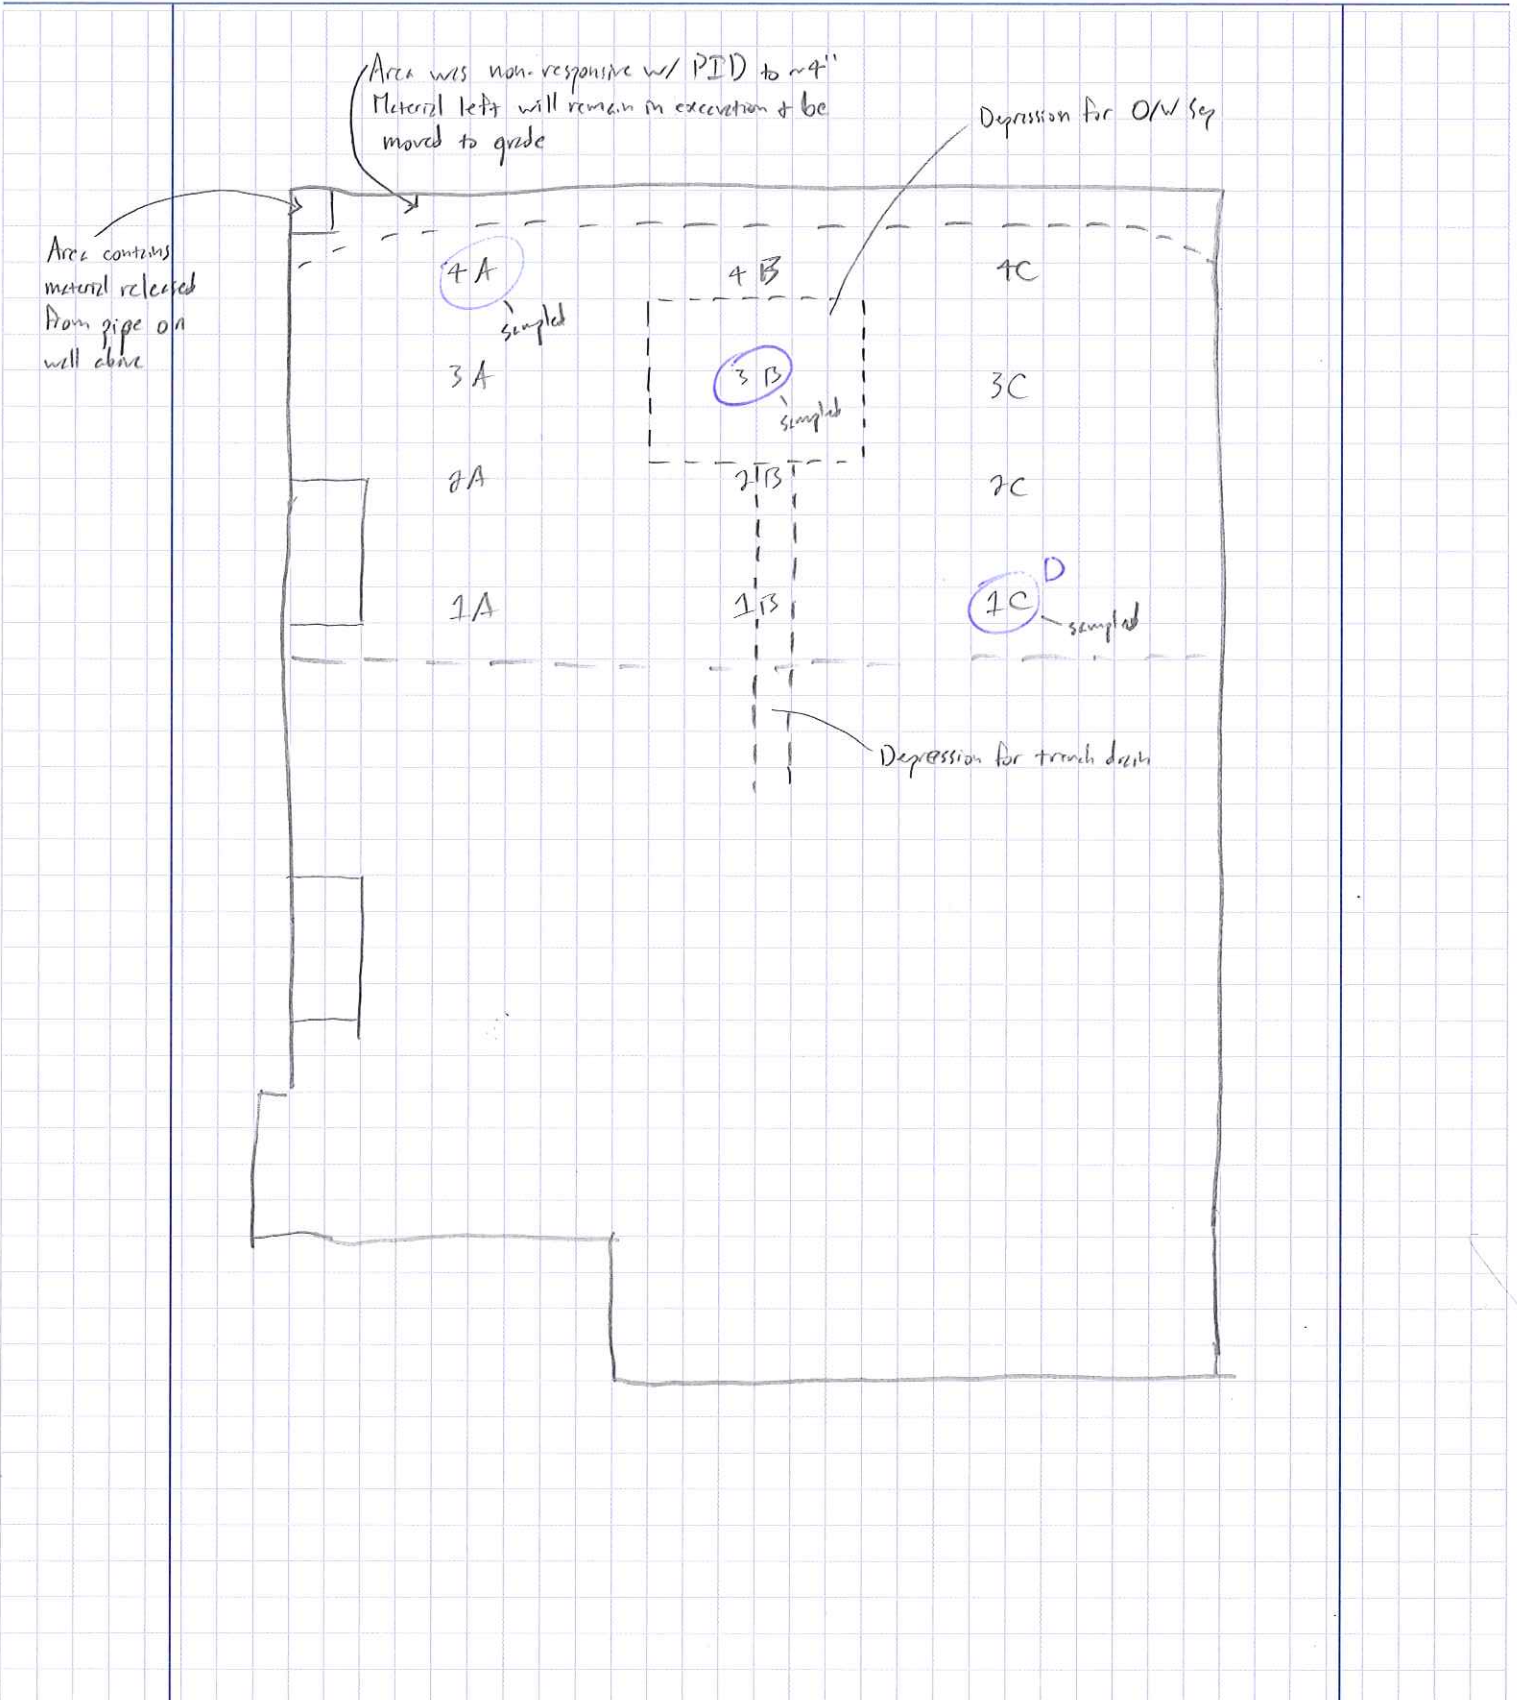 Area was non-responsive w/ PID to ~4"
Material left will remain in excavation & be
moved to grade
Depression for O/W Sep
Area contains
material released
from pipe on
wall above
4A
4B
4C
sampled
3A
3B
3C
sampled
2A
2B
2C
D
1A
1B
1C
sampled
Depression for trench drain